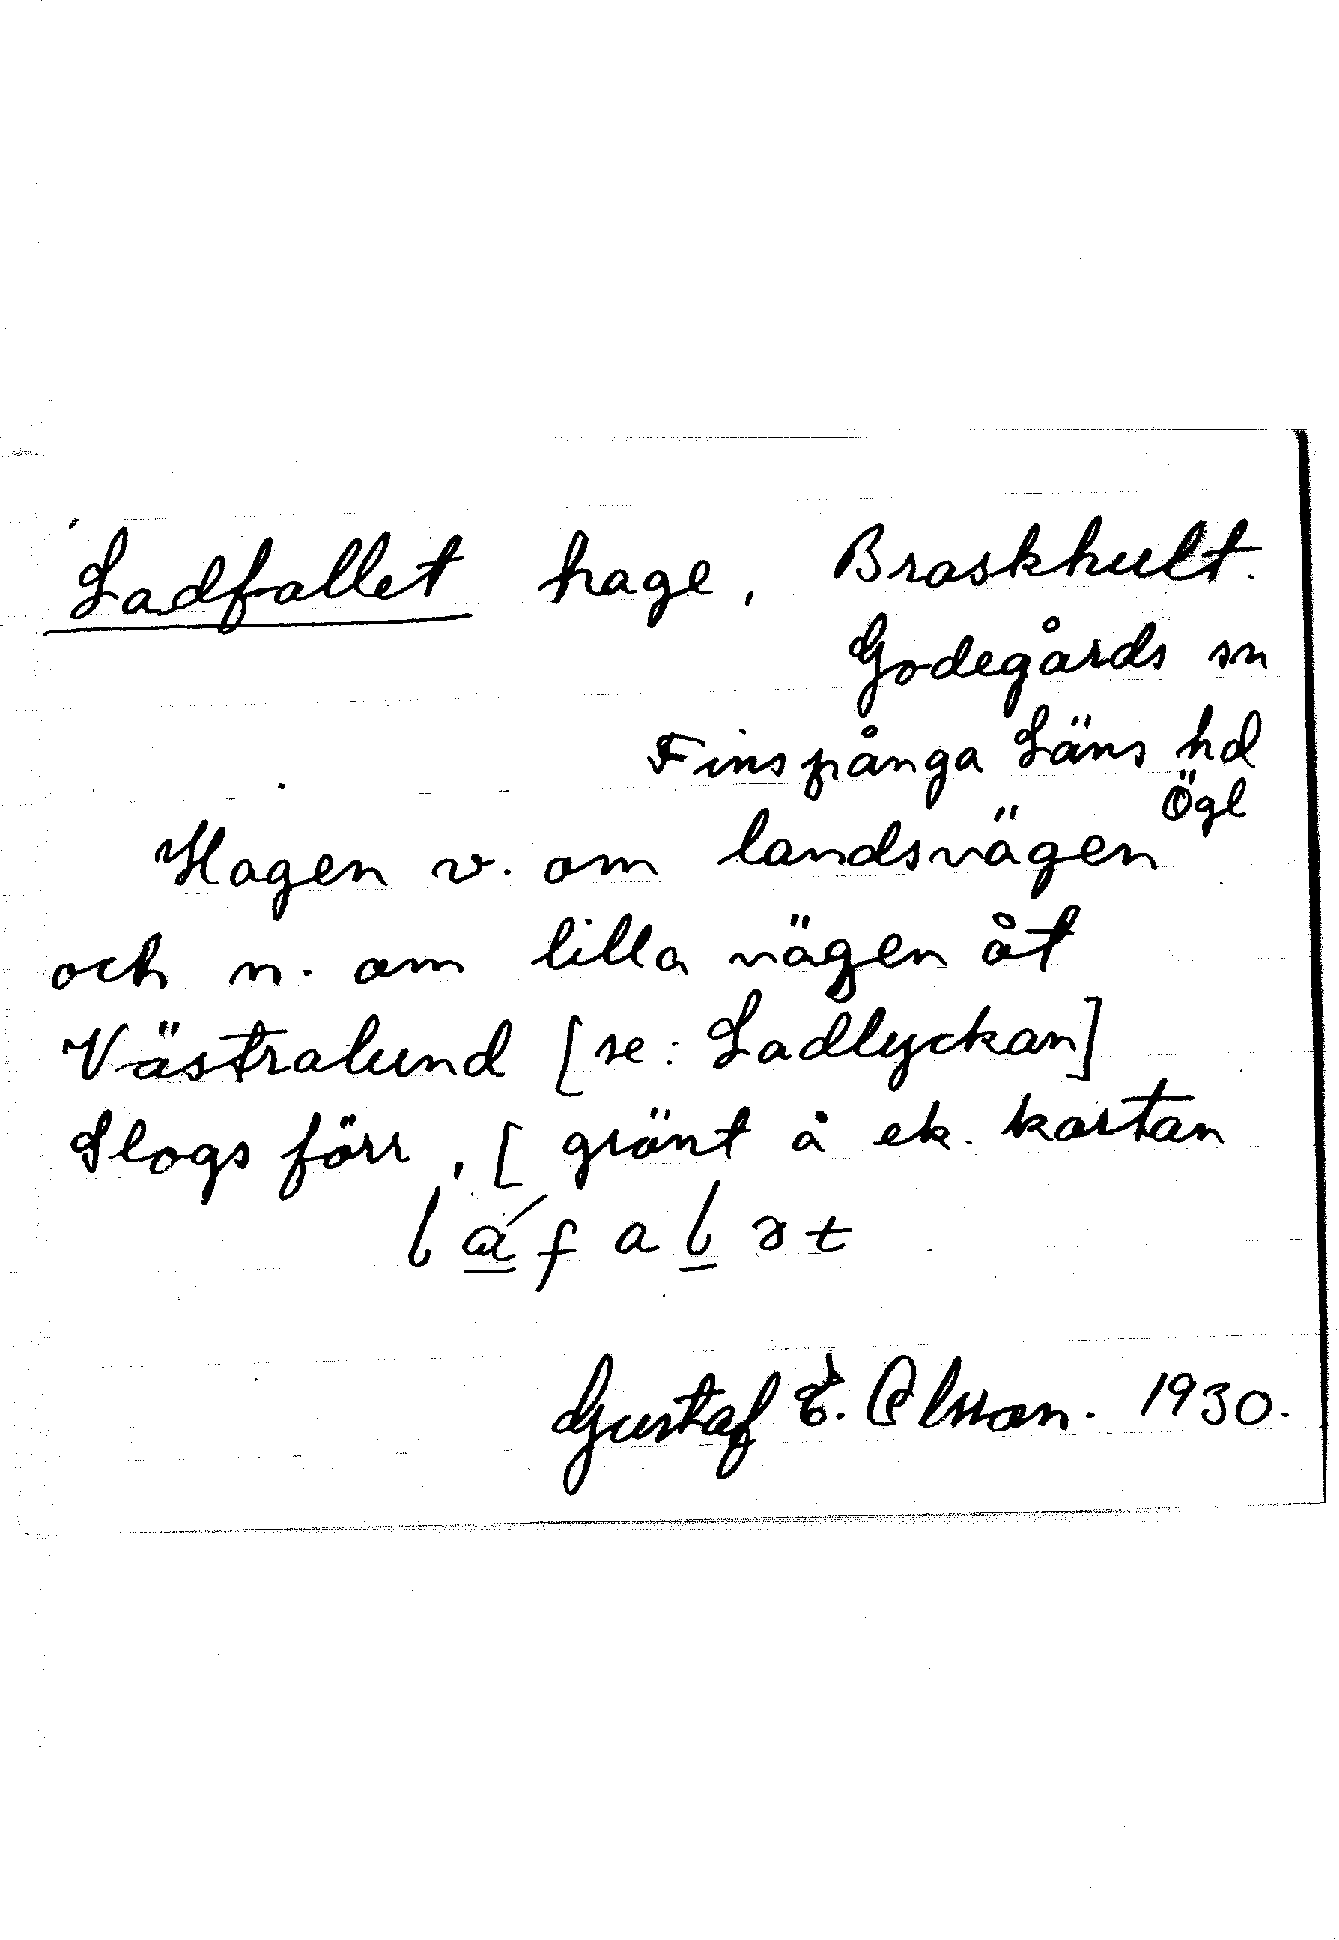 Ladfallet hage, Braskhult.
Godegårds sn
Finspånga Läns hd
Ögl
Hagen v. om landsvägen
och n. om lilla vägen åt
Västralund [se: Ladlyckan]
Slogs förr, [ grönt å ek. kartan
láfalət
Gustaf E. Olsson. 1930.